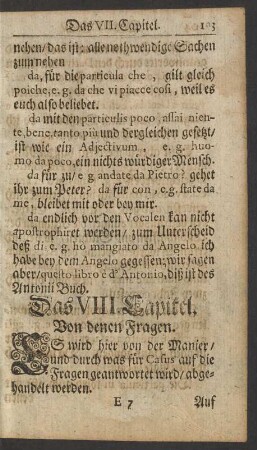 Das VII. Capitel. 103
nehen/ das ist: alle nothwendige Sachen
zum nehen
da, für die particula che, gilt gleich
poiche, e. g. da che vi piacce cosi, weil es
euch also beliebet.
da mit den particulis poco, assai, nien-
te, bene, tanto più und dergleichen gesetzt/
ist wie ein Adjectivum, e. g. huo-
mo da poco, ein nichts würdiger Mensch.
da für zu/ e g. andate da Pietro? gehet
ihr zum Peter? da für con, e. g. state da
me, bleibet mit oder bey mir.
da endlich vor den Vocalen kan nicht
apostrophiret werden/ zum Unterscheid
deß di e. g. ho mangiato da Angelo ich
habe bey dem Angelo gegessen; wir sagen
aber/ questo libro è d' Antonio, diß ist des
Antonii Buch.
Das VIII. Capitel.
Von denen Fragen.
ES wird hier von der Manier/
und durch was für Casus auf die
Fragen geantwortet wird/ abge-
handelt werden.
E 7 Auf